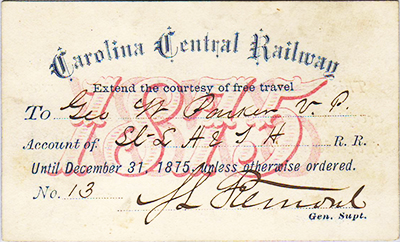 Carolina Central Railway
1875
Extend the courtesy of free travel
To Geo W Parker V. P.
Account of St L A & T H R. R.
Until December 31, 1875, unless otherwise ordered.
No. 13
Fremont
Gen. Supt.